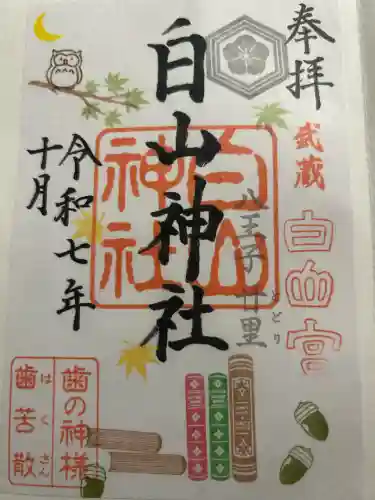 奉拝
武蔵
白山宮
八王子 廿里
とどり
白山神社
白山
神社
令和七年
十月
歯の神様
歯苦散
はくさん